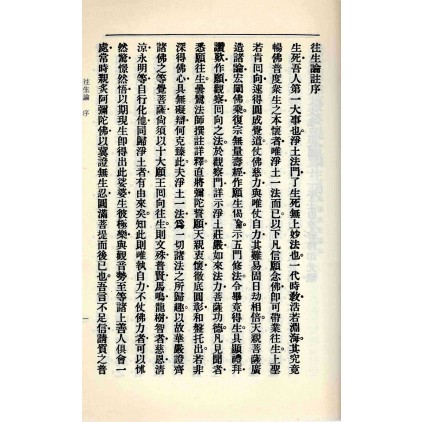 往生論註序
生死。吾人第一大事也。淨土法門。了生死無上妙法也。一代時教。浩若淵海。其究竟
暢佛普度衆生之本懷者。唯淨土一法而已。以下凡信願念佛。即可帶業往生。上聖
若肯回向。速得圓成覺道。仗佛慈力。與唯仗自力。其難易固日劫相倍。天親菩薩。廣
造諸論。宏闡佛乘。復宗無量壽經。作願生偈論。示五門修法。令畢竟得生。具顯禮拜。
讚歎。作願。觀察。回向之法。於觀察門。詳示淨土莊嚴。如來法力。菩薩功德。凡見聞者。
悉願往生。曇鸞法師。撰註詳釋。直將彌陀誓願。天親衷懷。徹底圓彰。和盤托出。若非
深得佛心。具無礙辯。何克臻此。夫淨土一法。為一切諸法之所歸趣。以故華嚴證齊
諸佛之等覺菩薩。尚須以十大願王。回向往生。則文殊普賢馬鳴龍樹智者慈恩清
涼永明等。自行化他。同歸淨土者。有由來矣。知此則唯執自力。不仗佛力者。可以悚
然驚。憬然悟。以期現生即得出此娑婆。生彼極樂。與觀音勢至等諸上善人。俱會一
處。常時親炙阿彌陀佛。以冀證無生忍。圓滿菩提而後已也。吾言不足信。請質之普
往生論 序
一